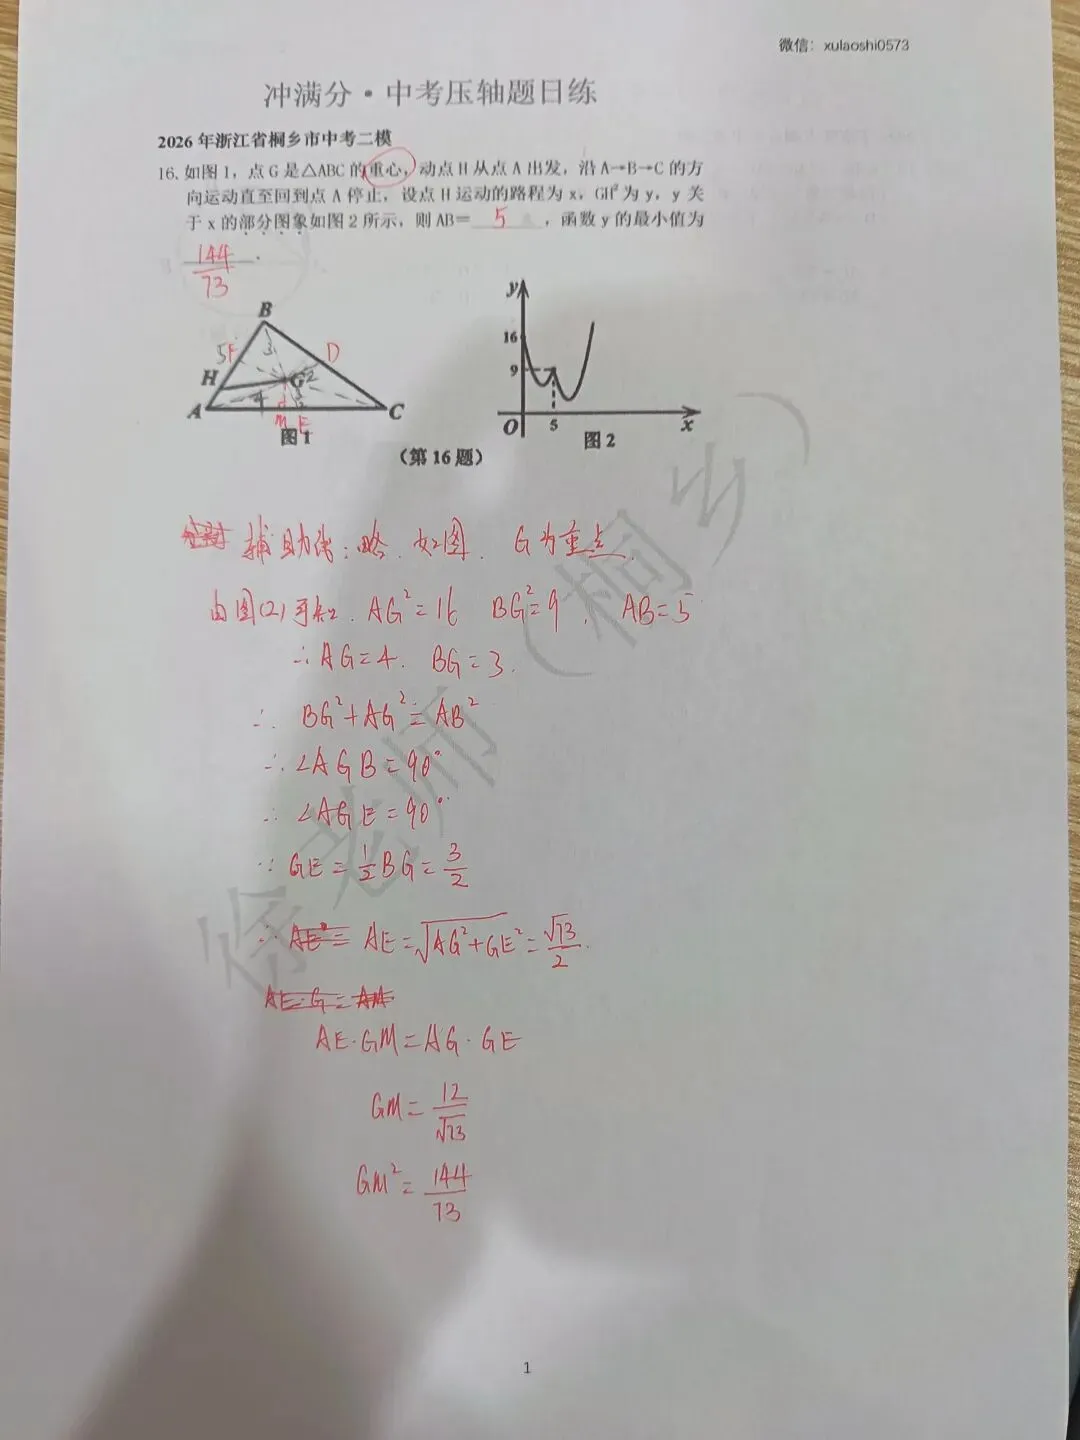 微信：xulaoshi0573
冲满分·中考压轴题日练
2026 年浙江省桐乡市中考二模
16. 如图 1，点 G 是△ABC 的重心，动点 H 从点 A 出发，沿 A→B→C 的方
向运动直至回到点 A 停止，设点 H 运动的路程为 x，GH²为 y，y 关
于 x 的部分图象如图 2 所示，则 AB= 5 ，函数 y 的最小值为
144/73 .
B
5 F 3 D
H G 2
A 4 d C
M E
图 1
y
16
9
O 5 x
图 2
（第 16 题）
辅助线：略. 如图. G为重点.
由图(2)可知. AG²=16 BG²=9, AB=5
∴AG=4. BG=3.
∴ BG²+AG²=AB²
∴∠AGB=90°
∴ ∠AGE=90°
∵ GE=1/2 BG=3/2
∴ AE²= AE=√(AG²+GE²)=√73/2.
AE·G=AM
AE·GM=AG·GE
GM=12/√73
GM²=144/73
徐老师（桐乡）
1